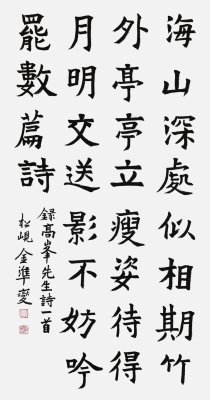 海山深處似相期竹
外亭亭立瘦姿待得
月明交送影不妨吟
罷數篇詩
録高峯先生詩一首
松峴金準燮